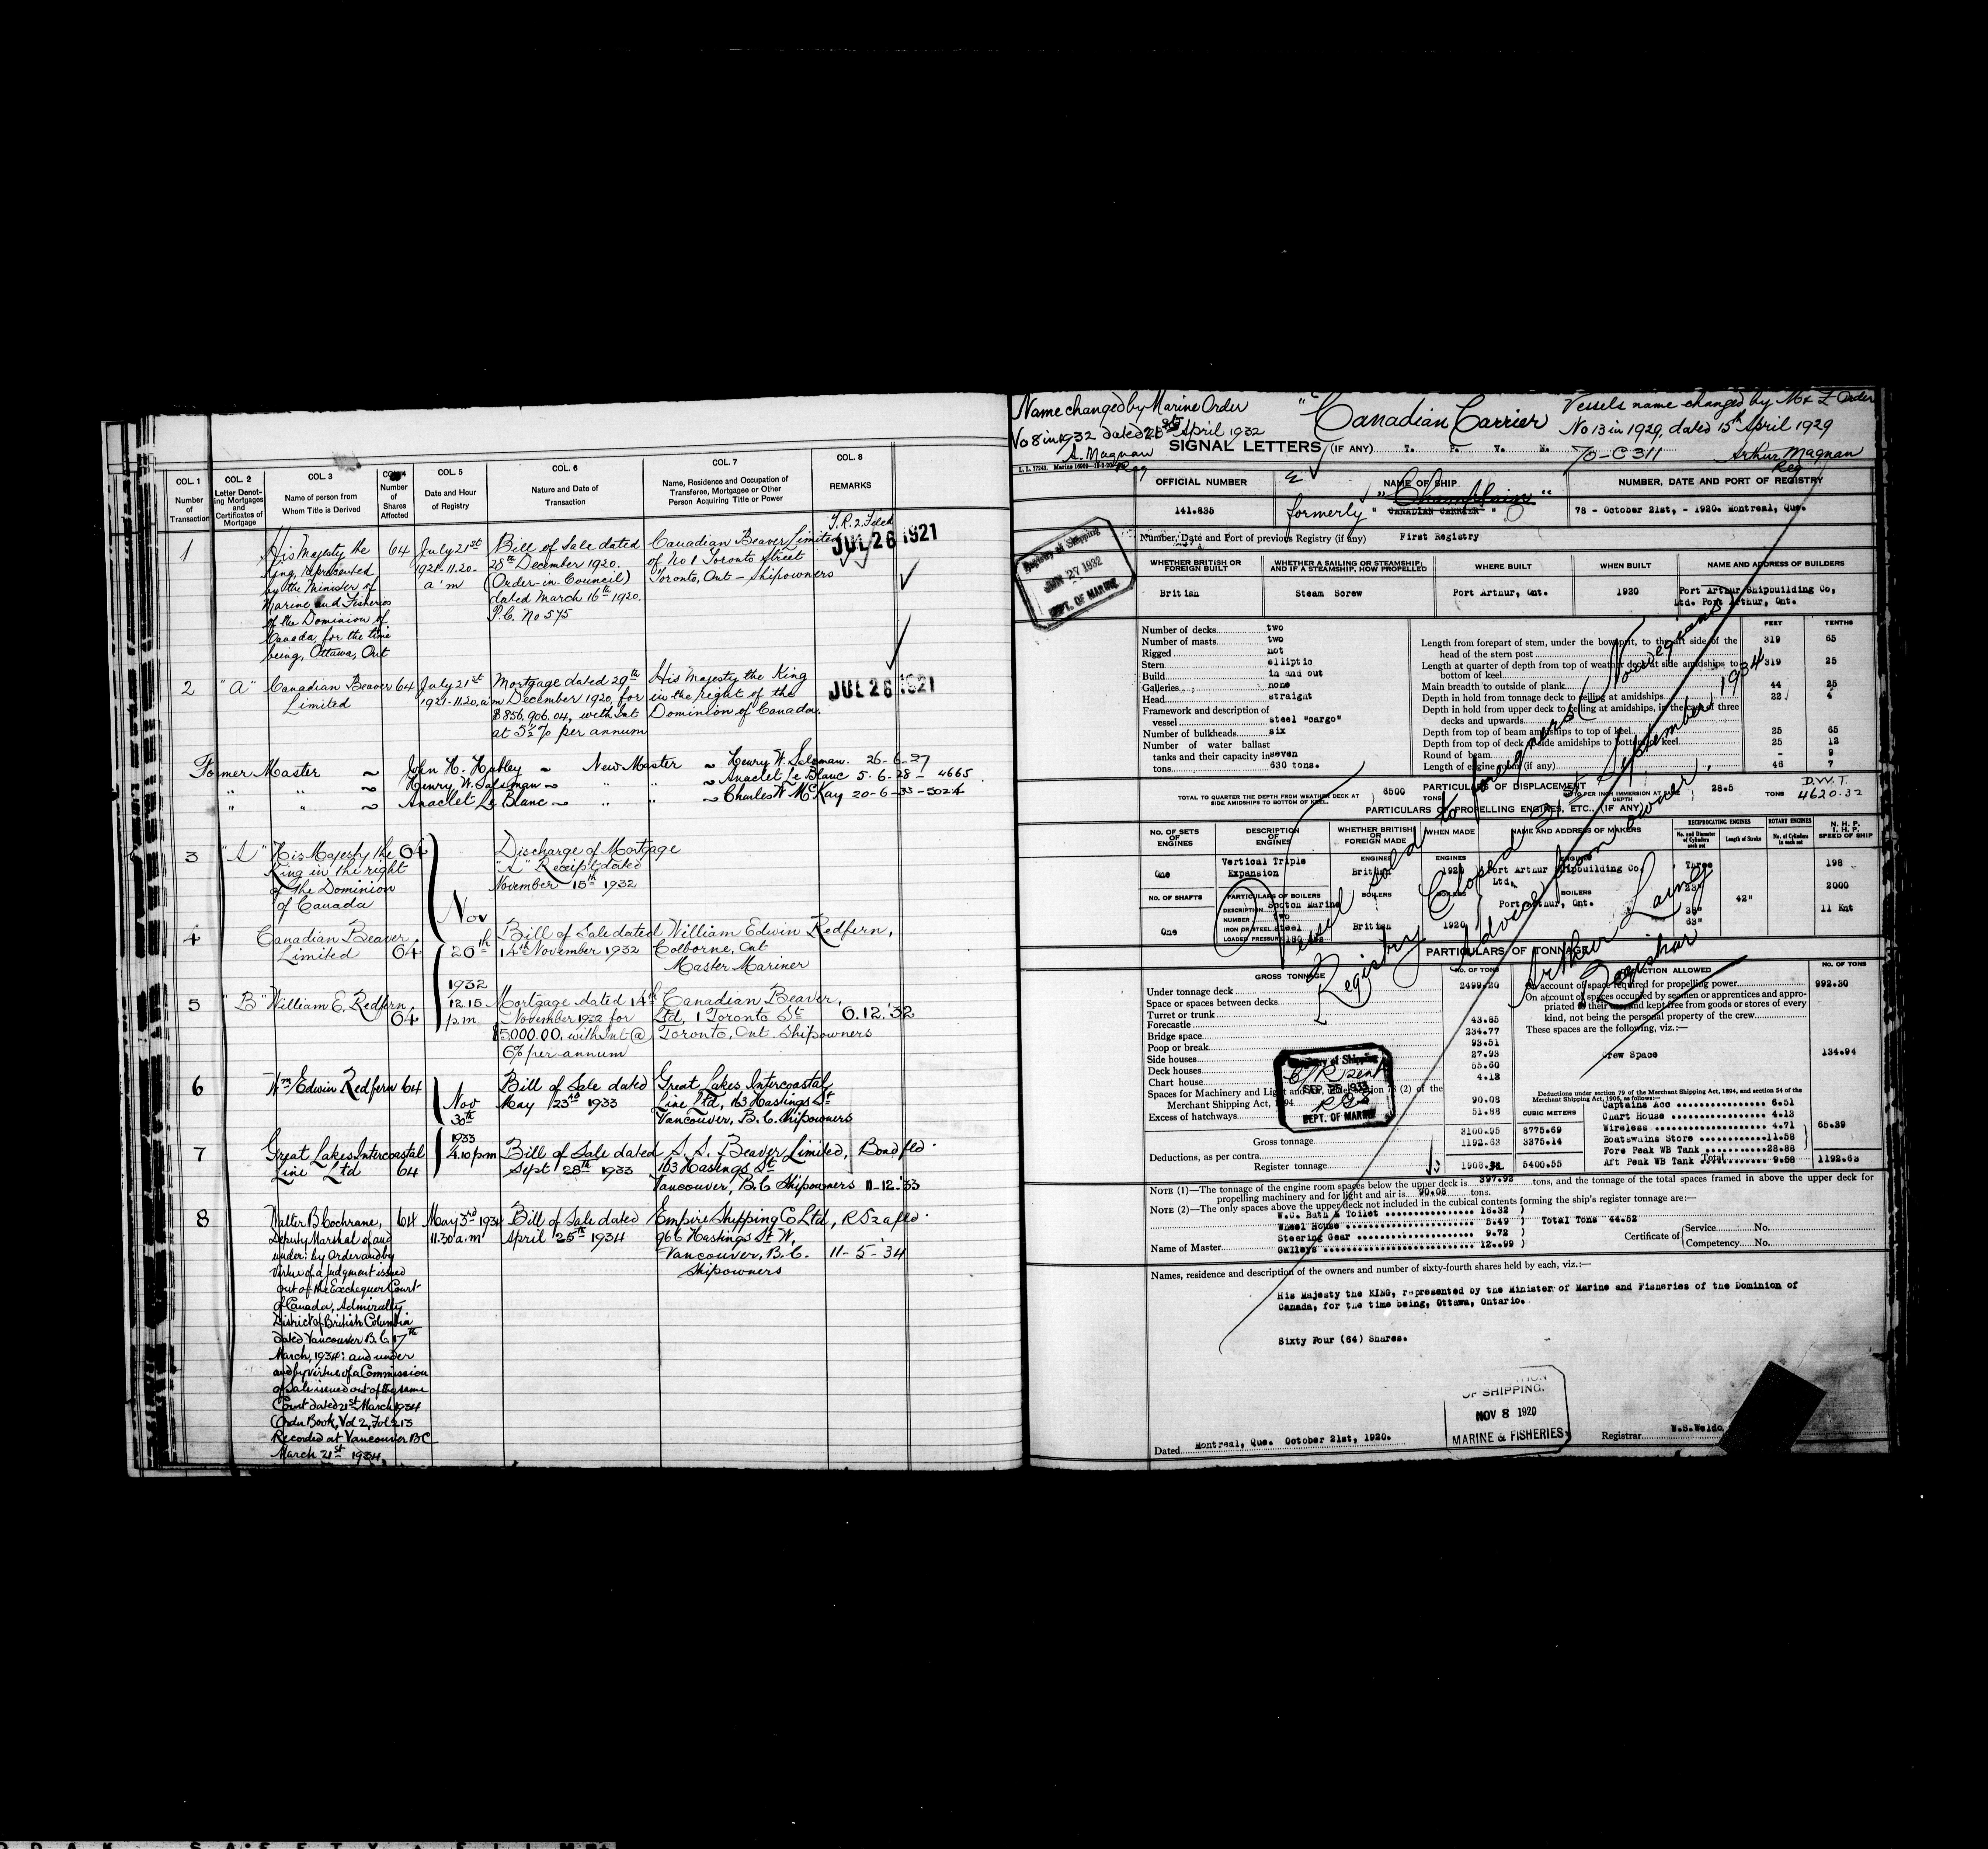 COL. 1
Number
of
Transaction
COL. 2
Letter Denot-
ing Mortgages
and
Certificates of
Mortgage
COL. 3
Name of person from
Whom Title is Derived
COL. 4
Number
of
Shares
Affected
COL. 5
Date and Hour
of Registry
COL. 6
Nature and Date of
Transaction
COL. 7
Name, Residence and Occupation of
Transferee, Mortgagee or Other
Person Acquiring Title or Power
COL. 8
REMARKS
1
His Majesty the
King, represented
by the Minister of
Marine and Fisheries
of the Dominion of
Canada, for the time
being, Ottawa, Ont
64
July 21st
1921-11.20-
a'm
Bill of Sale dated
28th December 1920.
(Order-in-Council)
dated March 16th 1920.
P.C. No 575
Canadian Beaver Limited
of No 1 Toronto Street
Toronto, Ont - Shipowners
T.R.2. Filed
JUL 26 1921
2
"A"
Canadian Beaver
Limited
64
July 21st
1921-11.20. a m
Mortgage dated 29th
December 1920, for
$856,906.04, with Int
at 5½% per annum
His Majesty the King
in the right of the
Dominion of Canada.
JUL 26 1921
Former Master ~ John H. Habley ~ New Master ~ Henry W. Salsman. 26-6-27
" " ~ Henry W. Salsman ~ " " ~ Anaclet Le Blanc 5-6-28 - 4665
" " ~ Anaclet Le Blanc ~ " " ~ Charles W McKay 20-6-33-5024
3
"A"
His Majesty the
King in the right
of the Dominion
of Canada
64
Discharge of Mortgage
"A" Receipt dated
November 15th 1932
4
Canadian Beaver
Limited
64
Nov
20th
1932
12.15
p.m.
Bill of Sale dated
14th November 1932
William Edwin Redfern,
Colborne, Ont
Master Mariner
5
"B"
William E. Redfern
64
Mortgage dated 14th
November 1932 for
$5000.00. with Int @
6% per annum
Canadian Beaver,
Ltd, 1 Toronto St
Toronto, Ont Shipowners
6.12.'32
6
Wm Edwin Redfern
64
Nov
30th
1933
4.10 pm
Bill of Sale dated
May 23rd 1933
Great Lakes Intercoastal
Line Ltd, 163 Hastings St
Vancouver, B.C. Shipowners
7
Great Lakes Intercoastal
Line Ltd
64
Bill of Sale dated
Sept 28th 1933
S. S. Beaver Limited,
163 Hastings St
Vancouver, B.C Shipowners
11-12-'33
8
Walter B Cochrane,
Deputy Marshal of and
under: by Order and by
virtue of a judgment issued
out of the Exchequer Court
of Canada, Admiralty
District of British Columbia
dated Vancouver B.C. 17th
March, 1934: and under
and by virtue of a Commission
of Sale issued out of the same
Court dated 21st March 1934
Order Book, Vol 2, Fol 213
Recorded at Vancouver BC
March 21st 1934.
64
May 3rd 1934
11.30 a.m
Bill of Sale dated
April 25th 1934
Empire Shipping Co Ltd,
966 Hastings St W.
Vancouver, B.C.
Shipowners
11-5-'34
Name changed by Marine Order
No 8 in 1932 dated April 1932
A. Magnan
Reg
"Canadian Carrier
Vessels name changed by M & F Order
No 13 in 1929, dated 15th April 1929
Arthur Magnan
Reg
SIGNAL LETTERS (IF ANY) T. F. V. H.
TO-C311
OFFICIAL NUMBER
NAME OF SHIP
NUMBER, DATE AND PORT OF REGISTRY
141.835
formerly
"Champlain"
"CANADIAN CARRIER"
78 - October 21st, - 1920. Montreal, Que.
Number, Date and Port of previous Registry (if any) First Registry
WHETHER BRITISH OR
FOREIGN BUILT
WHETHER A SAILING OR STEAMSHIP;
AND IF A STEAMSHIP, HOW PROPELLED
WHERE BUILT
WHEN BUILT
NAME AND ADDRESS OF BUILDERS
British
Steam Screw
Port Arthur, Ont.
1920
Port Arthur Shipbuilding Co,
Ltd. Port Arthur, Ont.
Registry of Shipping
JUN 27 1932
DEPT. OF MARINE
Number of decks two
Number of masts two
Rigged not
Stern elliptic
Build in and out
Galleries none
Head straight
Framework and description of
vessel steel "cargo"
Number of bulkheads six
Number of water ballast
tanks and their capacity in seven
tons 630 tons.
FEET
TENTHS
Length from forepart of stem, under the bowsprit, to the aft side of the
head of the stern post 319 65
Length at quarter of depth from top of weather deck at side amidships to
bottom of keel 319 25
Main breadth to outside of plank 44 25
Depth in hold from tonnage deck to ceiling at amidships 22 4
Depth in hold from upper deck to ceiling at amidships, in the case of three
decks and upwards
Depth from top of beam amidships to top of keel 25 65
Depth from top of deck at side amidships to bottom of keel 25 12
Round of beam - 9
Length of engine room (if any) 46 7
PARTICULARS OF DISPLACEMENT
TOTAL TO QUARTER THE DEPTH FROM WEATHER DECK AT
SIDE AMIDSHIPS TO BOTTOM OF KEEL
6500
TONS
DITTO PER INCH IMMERSION AT SAME
DEPTH
28.5
TONS
D.W.T.
4620.32
PARTICULARS OF PROPELLING ENGINES, ETC., (IF ANY)
NO. OF SETS
OF
ENGINES
DESCRIPTION
OF
ENGINES
WHETHER BRITISH
OR
FOREIGN MADE
WHEN MADE
NAME AND ADDRESS OF MAKERS
RECIPROCATING ENGINES
No. and Diameter
of Cylinders
each set
Length of Stroke
ROTARY ENGINES
No. of Cylinders
in each set
N. H. P.
I. H. P.
SPEED OF SHIP
One
Vertical Triple
Expansion
ENGINES
British
ENGINES
1920
ENGINES
Port Arthur Shipbuilding Co,
Ltd.
Port Arthur, Ont.
Three
23"
38"
63"
42"
198
2000
11 Knt
NO. OF SHAFTS
One
PARTICULARS OF BOILERS
DESCRIPTION Scotch Marine
NUMBER two
IRON OR STEEL steel
LOADED PRESSURE 180 lbs
BOILERS
British
BOILERS
1920
BOILERS
Vessel sold to foreigners (Norwegians)
Registry Closed September, 1934
Advice from owner.
Arthur Laing
Registrar
PARTICULARS OF TONNAGE
GROSS TONNAGE
NO. OF TONS
DEDUCTION ALLOWED
NO. OF TONS
Under tonnage deck 2499.20
Space or spaces between decks
Turret or trunk
Forecastle 43.85
Bridge space 234.77
Poop or break 93.51
Side houses 27.93
Deck houses 55.60
Chart house 4.13
Spaces for Machinery and Light and Air, under Section 78 (2) of the
Merchant Shipping Act, 1894 90.08
Excess of hatchways 51.88
CUBIC METERS
Gross tonnage 3100.95 8775.69
Deductions, as per contra 1192.63 3375.14
Register tonnage 1908.32 5400.55
On account of space required for propelling power 992.30
On account of spaces occupied by seamen or apprentices and appro-
priated to their use, and kept free from goods or stores of every
kind, not being the personal property of the crew
These spaces are the following, viz.:—
Crew Space 134.94
Deductions under section 79 of the Merchant Shipping Act, 1894, and section 54 of the
Merchant Shipping Act, 1906, as follows:—
Captains Acc 6.51
Chart House 4.13
Wireless 4.71
Boatswains Store 11.58
Fore Peak WB Tank 28.88
Aft Peak WB Tank 9.58
65.39
Total 1192.63
Registry of Shipping
SEP 25 1933
DEPT. OF MARINE
NOTE (1)—The tonnage of the engine room spaces below the upper deck is 397.92 tons, and the tonnage of the total spaces framed in above the upper deck for
propelling machinery and for light and air is 90.08 tons.
NOTE (2)—The only spaces above the upper deck not included in the cubical contents forming the ship's register tonnage are:—
W.C. Bath & Toilet 16.32
Wheel House 5.49
Steering Gear 9.72
Galleys 12.99
Total Tons 44.52
Name of Master
Certificate of
Service No.
Competency No.
Names, residence and description of the owners and number of sixty-fourth shares held by each, viz.:—
His Majesty the KING, represented by the Minister of Marine and Fisheries of the Dominion of
Canada, for the time being, Ottawa, Ontario.
Sixty Four (64) Shares.
OF SHIPPING.
NOV 8 1920
MARINE & FISHERIES
Dated Montreal, Que. October 21st, 1920.
Registrar W.S.Weldo